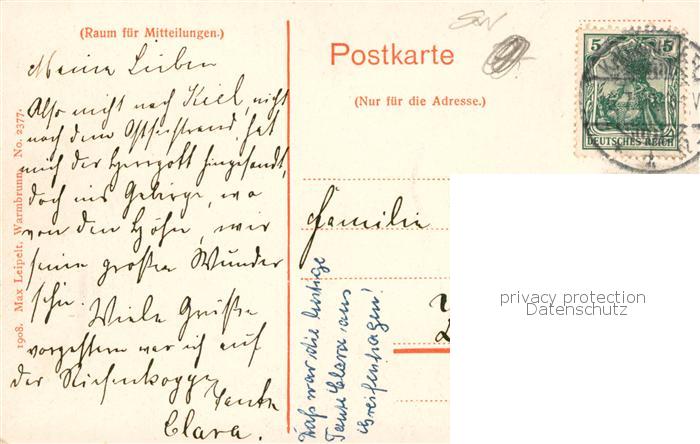 (Raum für Mitteilungen.)
Meine Lieben
Also nicht nach Kiel, nicht
nach dem Ostseestrand, hat
mich der Herrgott hingesandt,
doch ins Gebirge, wo
von den Höhn, wir
seine großen Wunder
sehn.
Viele Grüße
vorgestern war ich auf
der Riesenkoppe
Tante
Clara.
1908. Max Leipelt, Warmbrunn. No. 2377.
Postkarte
(Nur für die Adresse.)
5 5
DEUTSCHES REICH
Familie
Das war die lustige
Tante Clara aus
Greifenhagen!
privacy protection
Datenschutz